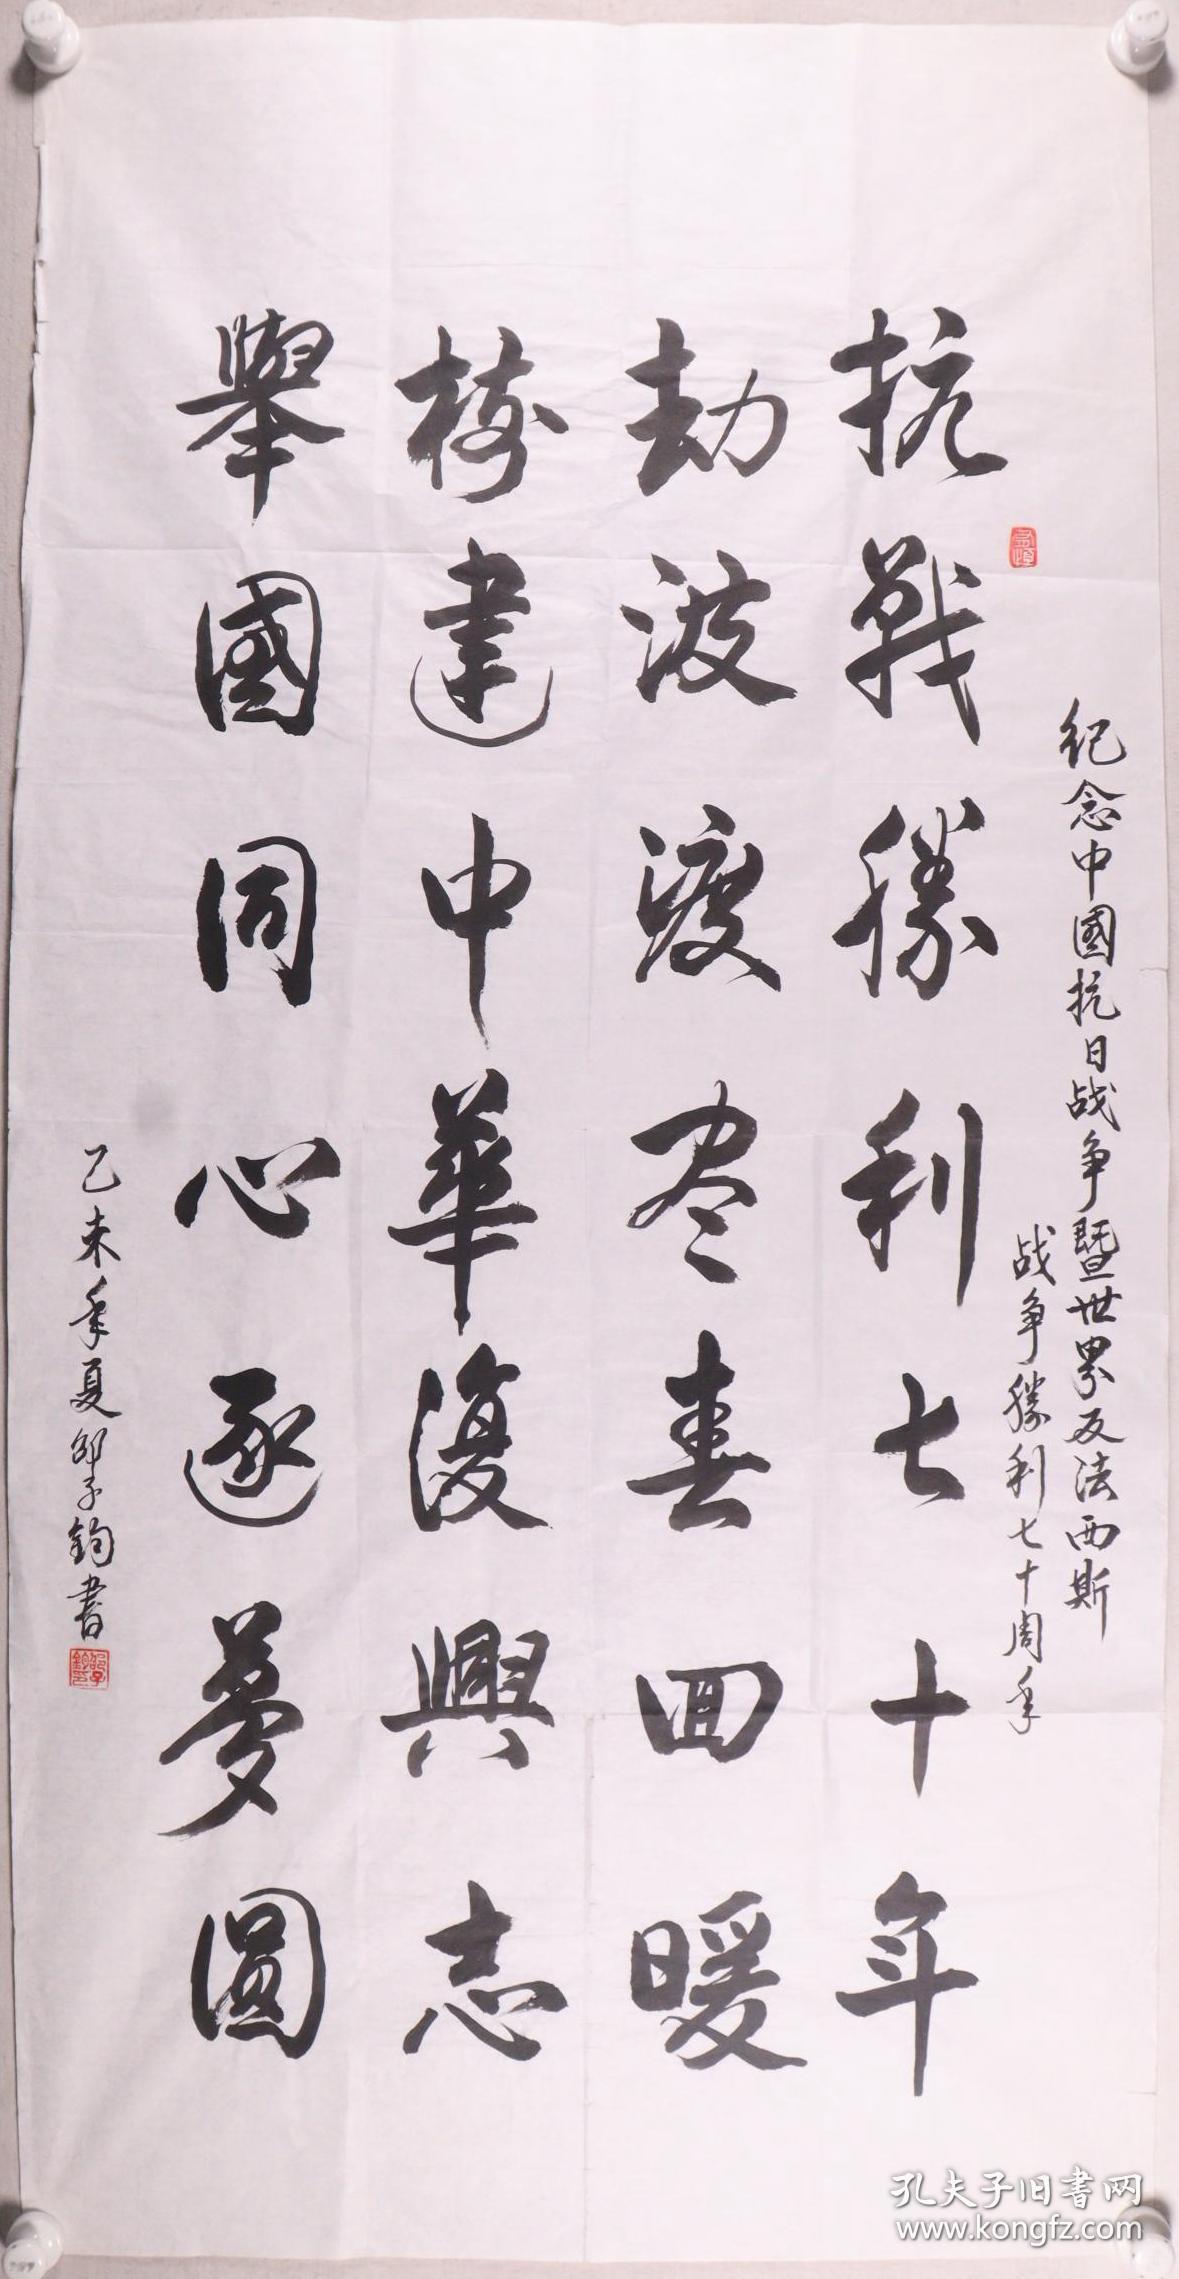 纪念中國抗日战争暨世界反法西斯
战争勝利七十周年
抗戰勝利七十年
劫波渡尽春回暖
建中華復興志
舉國同心逐夢圓
乙未年夏邵子鈞書
孔夫子旧书网
www.kongfz.com